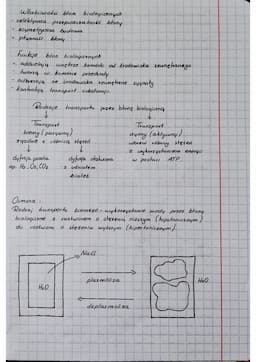 Właściwości błon biologicznych
- selektywna przepuszczalność błony
- asymetryczna budowa
- płynność błony
Funkcje błon biologicznych
- oddzielają wnętrze komórki od środowiska zewnętrznego
- tworzą w komórce przedziały
- odbierają ze środowiska zewnętrznego sygnały
- kontrolują transport substancji
Rodzaje transportu przez błonę biologiczną
Transport
bierny (pasywny)
zgodnie z różnicą stężeń
Transport
czynny (aktywny)
wbrew różnicy stężeń
z wykorzystaniem energii
w postaci ATP
dyfuzja prosta
np. H₂O, O₂, CO₂
dyfuzja ułatwiona
z udziałem
białek
Osmoza:
Rodzaj transportu biernego wody przez błonę
biologiczną z roztworu o stężeniu niższym (hipotonicznym)
do roztworu o stężeniu wyższym (hipertonicznym).
NaCl
H₂O
plazmoliza
deplazmoliza
H₂O